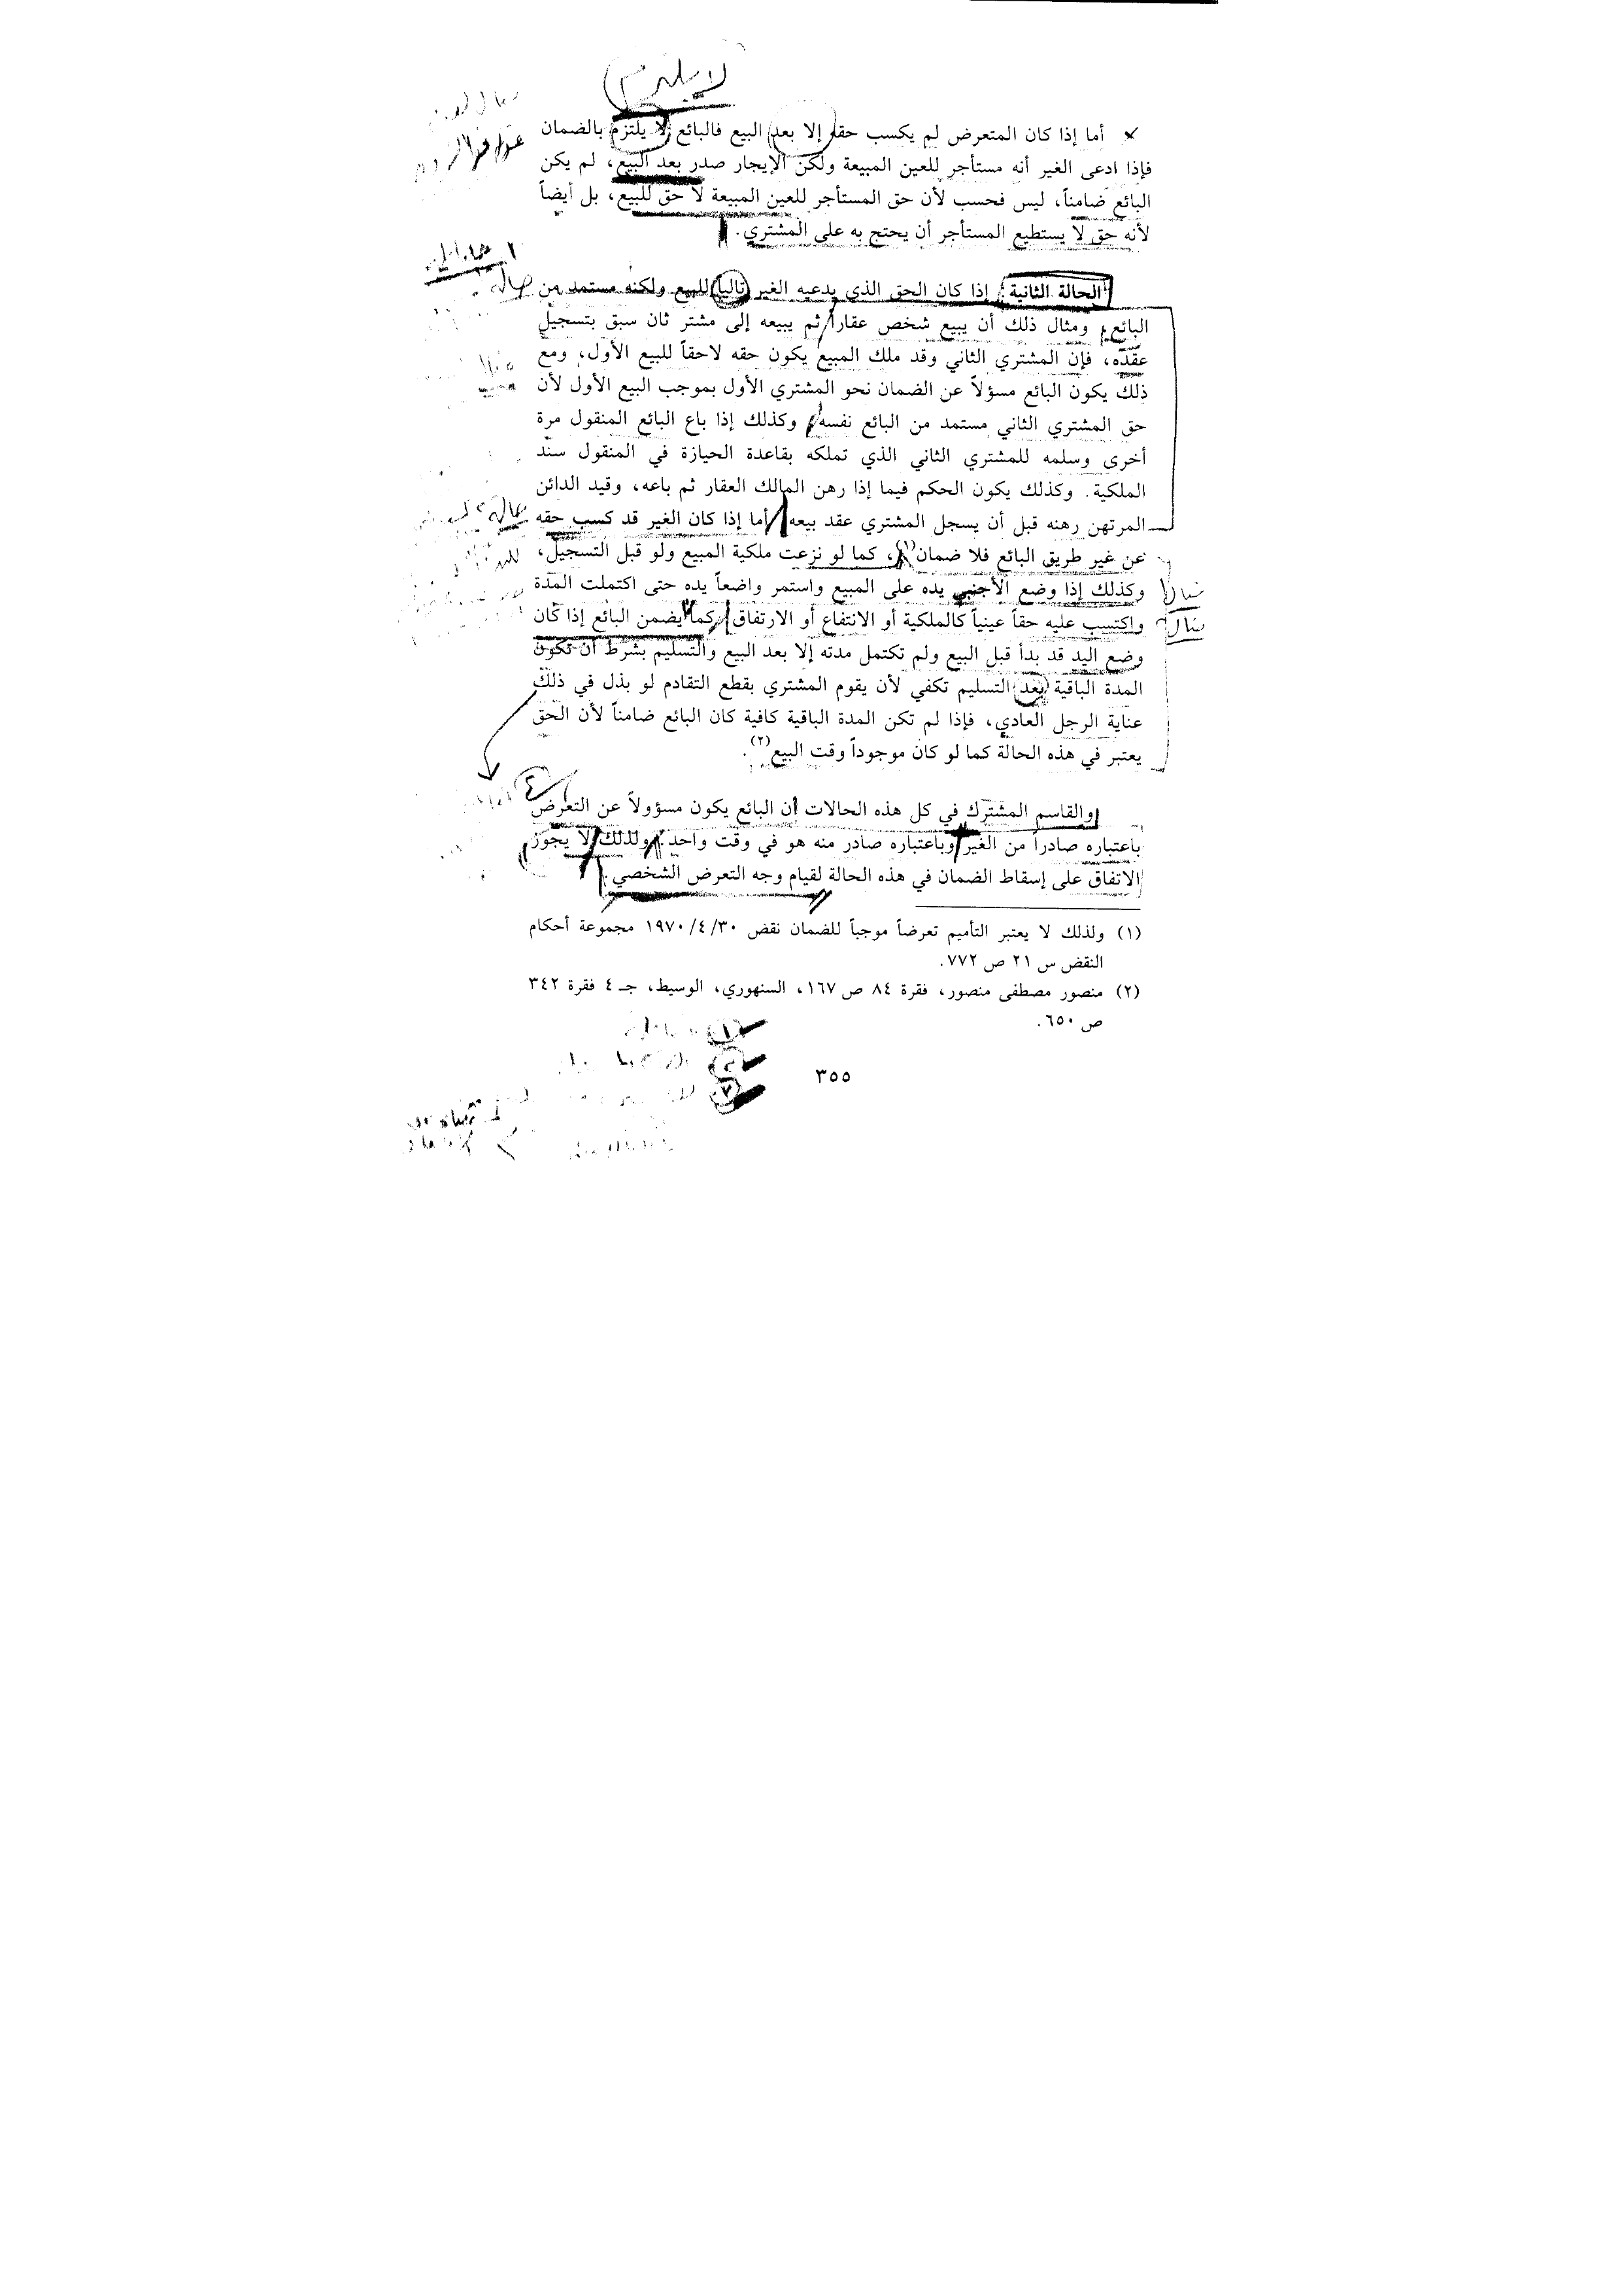 لا يلتزم
أما إذا كان المتعرض لم يكسب حقه إلا بعد البيع فالبائع لا يلتزم بالضمان
فإذا ادعى الغير أنه مستأجر للعين المبيعة ولكن الإيجار صدر بعد البيع، لم يكن
البائع ضامناً، ليس فحسب لأن حق المستأجر للعين المبيعة لا حق للبيع، بل أيضاً
لأنه حق لا يستطيع المستأجر أن يحتج به على المشتري.
الحالة الثانية: إذا كان الحق الذي يدعيه الغير تالياً للبيع ولكنه مستمد من
البائع، ومثال ذلك أن يبيع شخص عقاراً ثم يبيعه إلى مشتر ثان سبق بتسجيل
عقده، فإن المشتري الثاني وقد ملك المبيع يكون حقه لاحقاً للبيع الأول، ومع
ذلك يكون البائع مسؤلاً عن الضمان نحو المشتري الأول بموجب البيع الأول لأن
حق المشتري الثاني مستمد من البائع نفسه، وكذلك إذا باع البائع المنقول مرة
أخرى وسلمه للمشتري الثاني الذي تملكه بقاعدة الحيازة في المنقول سند
الملكية. وكذلك يكون الحكم فيما إذا رهن المالك العقار ثم باعه، وقيد الدائن
المرتهن رهنه قبل أن يسجل المشتري عقد بيعه أما إذا كان الغير قد كسب حقه
عن غير طريق البائع فلا ضمان(١)، كما لو نزعت ملكية المبيع ولو قبل التسجيل،
وكذلك إذا وضع الأجنبي يده على المبيع واستمر واضعاً يده حتى اكتملت المدة
واكتسب عليه حقاً عينياً كالملكية أو الانتفاع أو الارتفاق كما يضمن البائع إذا كان
وضع اليد قد بدأ قبل البيع ولم تكتمل مدته إلا بعد البيع والتسليم بشرط أن تكون
المدة الباقية بعد التسليم تكفي لأن يقوم المشتري بقطع التقادم لو بذل في ذلك
عناية الرجل العادي، فإذا لم تكن المدة الباقية كافية كان البائع ضامناً لأن الحق
يعتبر في هذه الحالة كما لو كان موجوداً وقت البيع(٢).
والقاسم المشترك في كل هذه الحالات أن البائع يكون مسؤولاً عن التعرض
باعتباره صادراً من الغير وباعتباره صادر منه هو في وقت واحد؛ ولذلك لا يجوز
الاتفاق على إسقاط الضمان في هذه الحالة لقيام وجه التعرض الشخصي.
(١) ولذلك لا يعتبر التأميم تعرضاً موجباً للضمان نقض ١٩٧٠/٤/٣٠ مجموعة أحكام
النقض س ٢١ ص ٧٧٢.
(٢) منصور مصطفى منصور، فقرة ٨٤ ص ١٦٧، السنهوري، الوسيط، جـ ٤ فقرة ٣٤٢
ص ٦٥٠.
٣٥٥